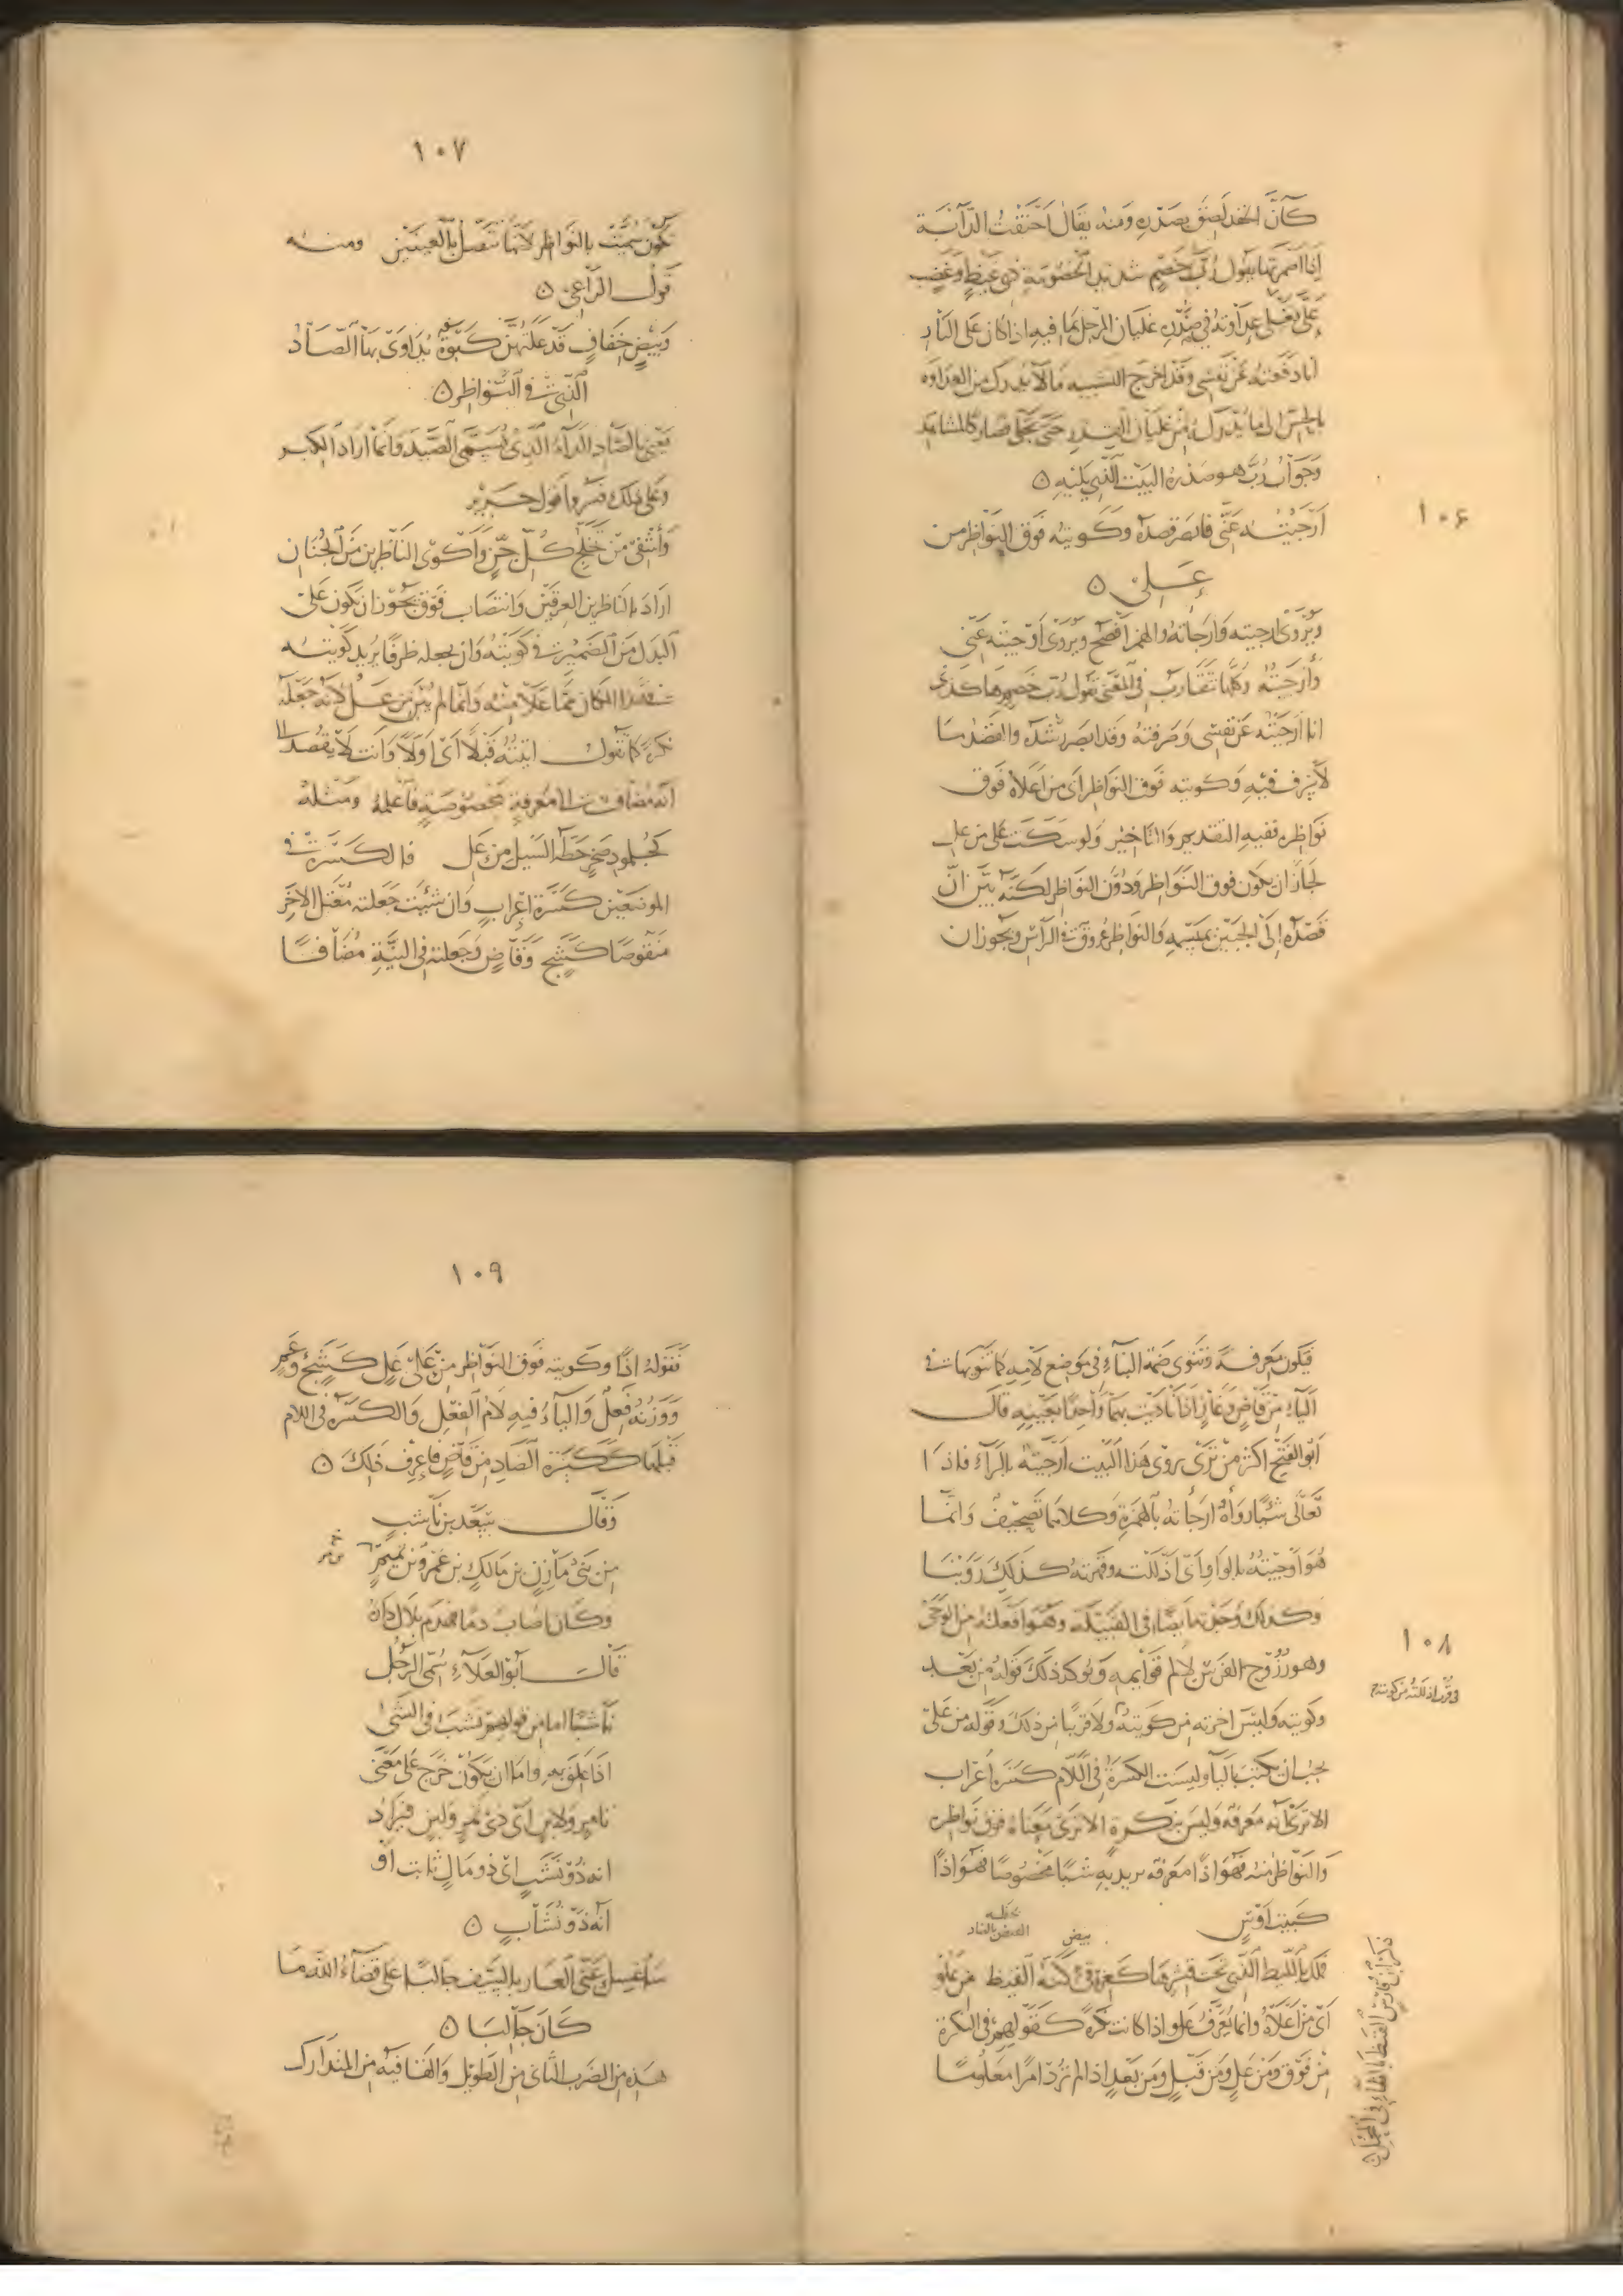 كأنّ الحقد لصق بصدره ومنه يقال احنقت الدابة
اذا اضمرتها يقول رُبّ خصم شديد الخصومة ذي غيظ وغضب
عليّ تغلي عداوته في صدره غليان المرجل بما فيه اذا كان على النار
انا دفعته عن نفسي وقد اخرج التشبيه ما لا يدرك من العداوة
بالحس الى ما يدرك من غليان القدر حتى تجلّى فصار كالمشاهد
وجواب رُبّ هو صدر البيت الذي يليه ن
١٠٦
أرجيته عنّي فابصر قصده وكويته فوق النواظر من
عَلِ ن
ويروى ارجيته وارجأته والهمز افصح ويروى اوجيته عنّي
وأزجيته وكلها تتقارب في المعنى يقول رب خصم هكذى
انا ارجيته عن نفسي وصرفته وقد ابصر رشده والقصد ما
لا سرف فيه وكويته فوق النواظر اي من اعلاه فوق
نواظره ففيه التقديم والتاخير ولو سكت على من عل
لجاز ان يكون فوق النواظر ودون النواظر لكنه بيّن انّ
قصده الى الجبين بميسمه والنواظر عروق في الراس ويجوز ان
١٠٧
تكون سُمّيت بالنواظر لانها تتصل بالعينين ومنه
قول الراعي ن
وبيض خفاف قد علتهن كبوة يداوى بها الصاد
الذي في النواظر ن
يعني بالصاد الداء الذي يسمى الصيد وانما اراد الكبر
وعلى ذلك فسروا قول جرير
وأشفي من تخلج كل جن وأكوي الناظرين من الخنان
اراد بالناظرين العرقين وانتصاب فوق يجوز ان يكون على
البدل من الضمير في كويته وان يجعله ظرفا يريد كويته
في هذا المكان مما علا منه وانما لم يُبن من عل لانه جعله
نكرة كما تقول اتيته قبلا اي اولا وانت لا تقصد الى
انه مضاف الى معرفة مخصوصة فاعلمه ومثله
كجلمود صخر حطه السيل من عل فالكسرة في
الموضعين كسرة اعراب وان شئت جعلته معتل الآخر
منقوصا كشج وقاض وجعلته في النية مضافا
فيكون معرفة وتنوى ضمة البناء في موضع لامه كما تنويها في
الياء من قاض وغاز اذا ناديت بهما واحدا بعينه قال
ابو الفتح اكثر من ترى يروى هذا البيت ارجيته بالراء فاذا
تعالى شيئا رواه ارجأته بالهمزة وكلاهما تصحيف وانما
هو اوجيته بالواو اي اذللته وقهرته كذلك روينا
وكذلك وجدتها ايضا في القبيلة وهو افعلته من الوجى
١٠٨
وهو رُزوح الفرس لالم قوائمه ويؤكد ذلك قوله من بعد
وكويته وليس اخرته من كويته ولا قريبا من ذلك وقوله من عل
يجب ان يكتب بالياء وليست الكسرة في اللام كسرة اعراب
الا ترى انه معرفة وليس بنكرة الا ترى معناه فوق نواظره
والنواظر منه فهو اذا معرفة يريد به شيئا مخصوصا فهو اذا
كبيت اوس
بيض
فملك بالليط الذي تحت قشرها كغرقئ كنه القيظ من علو
اي من اعلاه وانما يُعرّف علو اذا كانت نكرة كقولهم في النكرة
من فوق ومن عل ومن قبل ومن بعد اذا لم ترد امرا معلوما
١٠٩
فقوله اذا وكويته فوق النواظر من علي عل كشج وعم
ووزنه فَعِل والياء فيه لام الفعل والكسرة في اللام
قبلها ككسرة الصاد من قاض فاعرف ذلك ن
وقال سعد بن ناشب
من بني مازن بن مالك بن عمرو بن تميم
وكان اصاب دما فهدم بلال داره
قال ابو العلاء سُمّي الرجل
ناشبا اما من قولهم نشب في الشئ
اذا علق به واما ان يكون خرج على معنى
تامر ولابن اي ذي تمر ولبن فيراد
انه ذو نشب اي ذو مال ثابت او
انه ذو نُشّاب ن
سأغسل عنّي العار بالسيف جالبا علي قضاء الله ما
كان جالبا ن
هذه من الضرب الثاني من الطويل والقافية من المتدارك